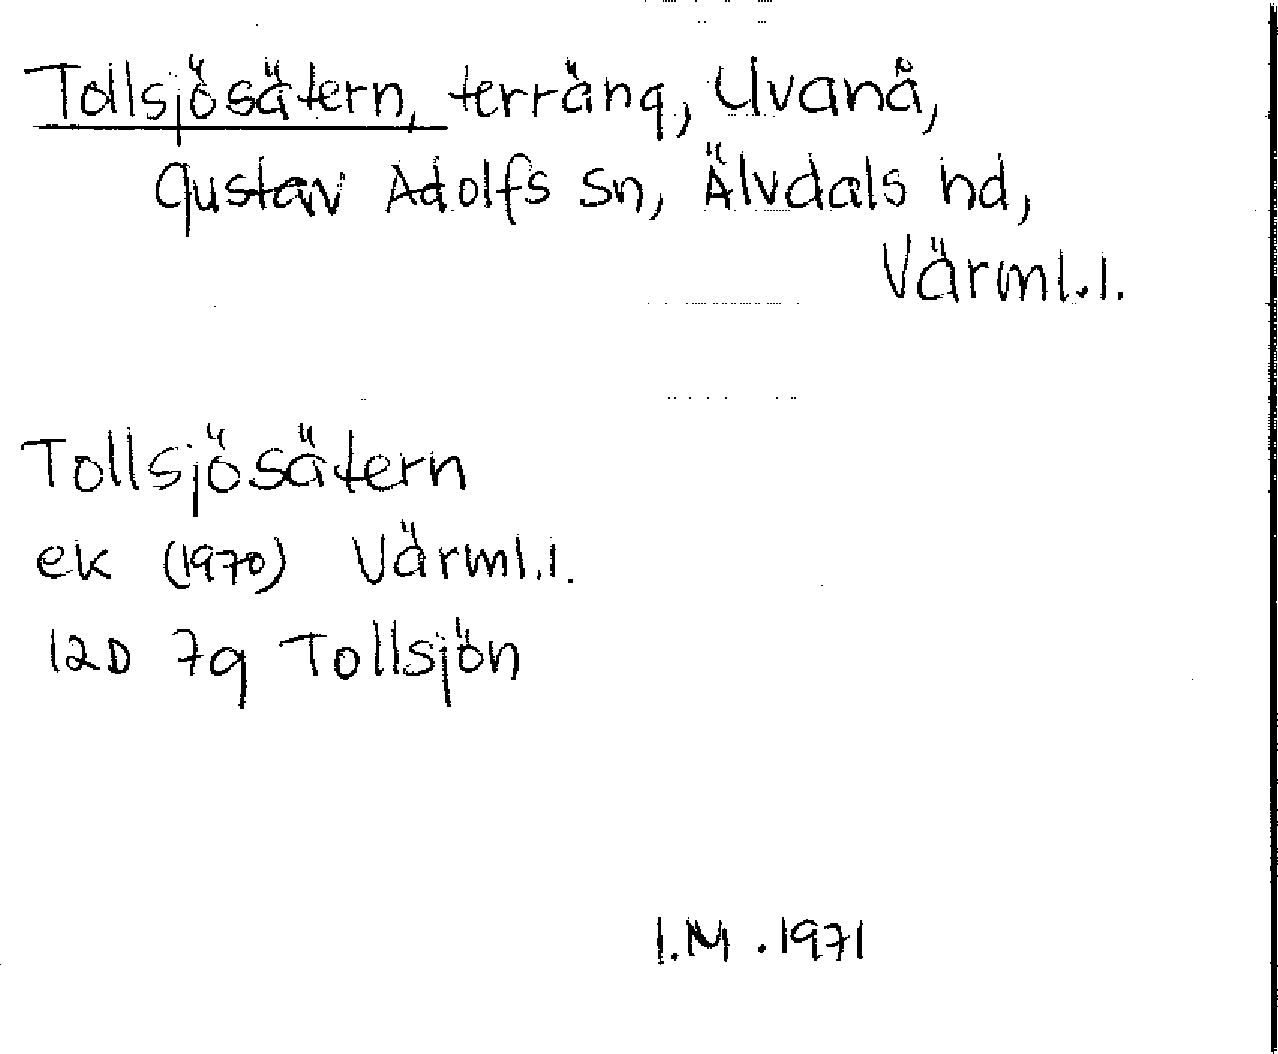 Tollsjösätern, terräng, Uvanå,
Gustav Adolfs sn, Älvdals hd,
Värml.l.
Tollsjösätern
ek (1970) Värml.l.
12D 7g Tollsjön
I.M. 1971